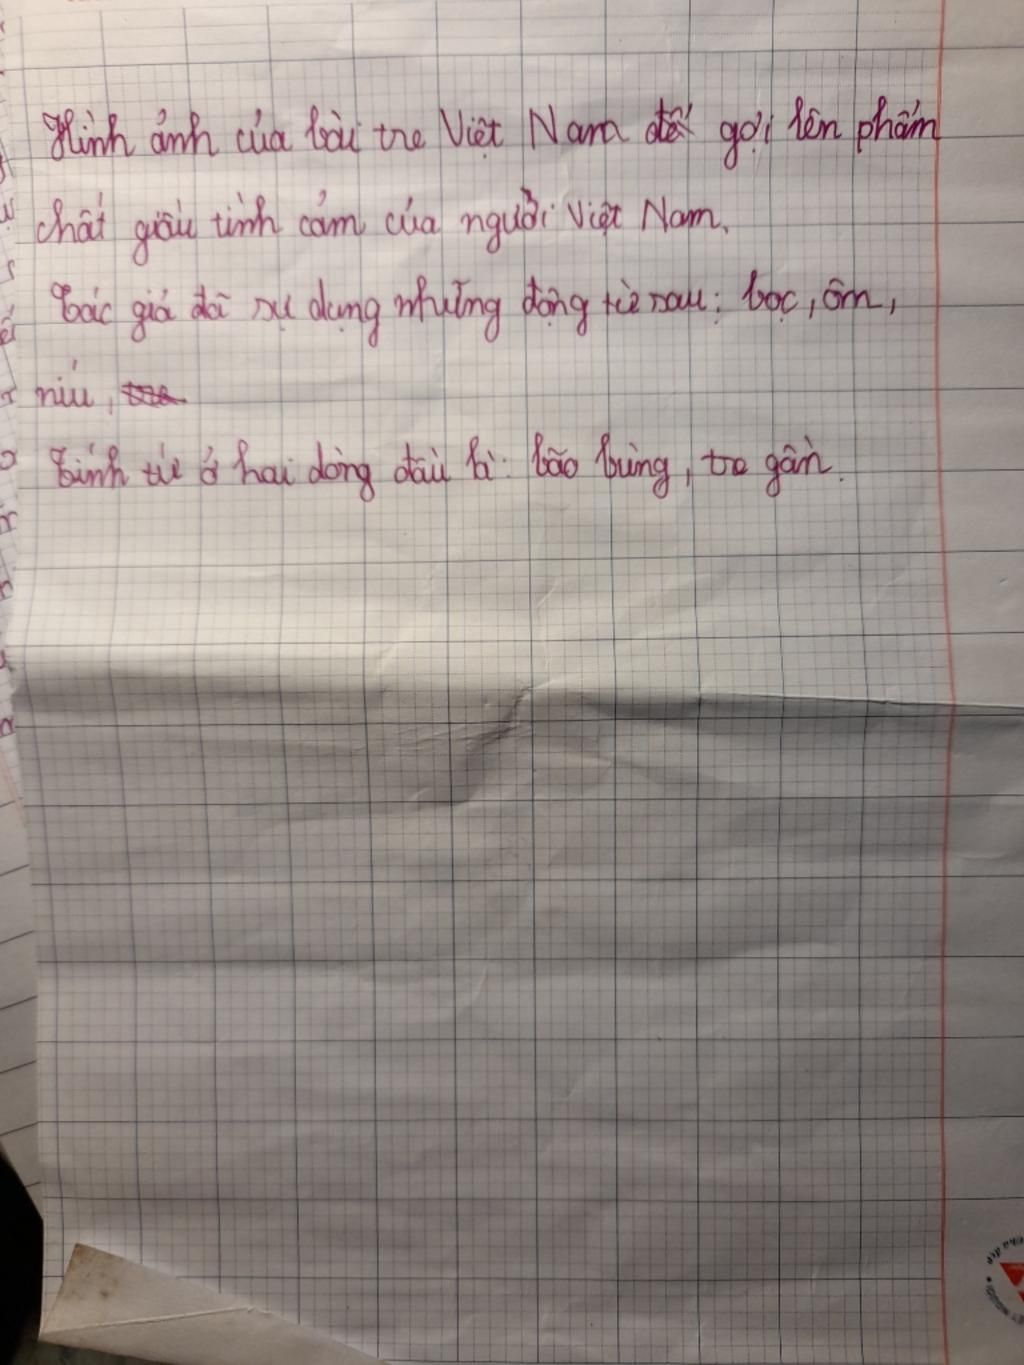 Hình ảnh của loài tre Việt Nam để gợi lên phẩm
chất giàu tình cảm của người Việt Nam.
Tác giả đã sự dụng những động từ sau: bọc, ôm,
níu,
Tính từ ở hai dòng đầu là: bão bùng, tre gần.